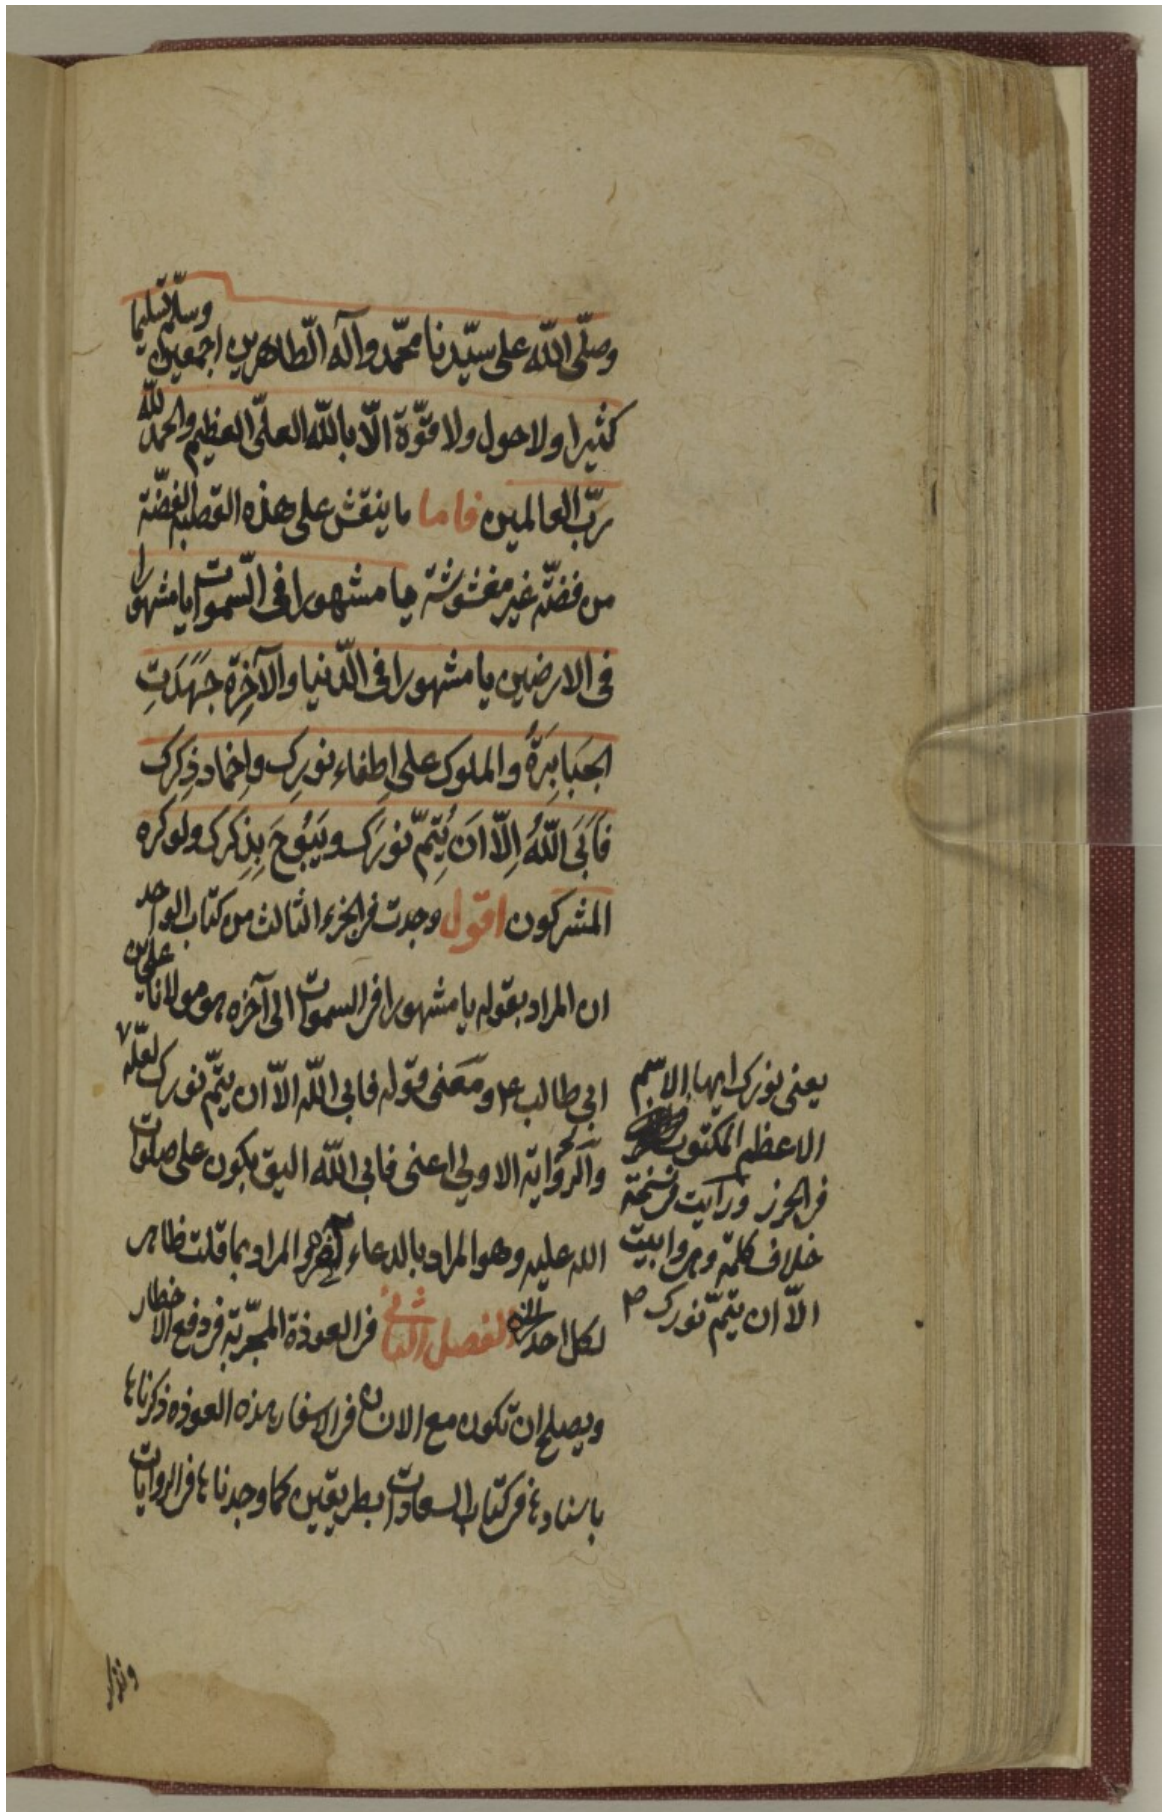 وصلّى اللّه على سيّدنا محمّد وآله الطّاهرين اجمعين وسلّم تسليما
كثيرا ولا حول ولا قوّة الّا باللّه العلىّ العظيم والحمد للّه
ربّ العالمين فاما ما ينقش على هذه القصبة الفضّة
من فضّة غير مغشوشة يا مشهورا فى السّموات يا مشهورا
فى الارضين يا مشهورا فى الدّنيا والآخِرة جَهَدَتِ
الجَبَابِرَةُ والملوك على اِطفاءِ نورِك واِخماد ذِكرِك
فَاَبَى اللّهُ اِلّا اَن يُتِمّ نورَك ويَبُوحَ بِذِكرِك ولو كره
المشركون اقول وجدت فى الجزء الثالث من كتاب الواحد
ان المراد بقوله يا مشهورا فى السموات الى آخره هو مولانا على بن
ابى طالب ع ومَعنى قوله فابى اللّه الّا ان يتمّ نورك لعلّه
والرّواية الاولى اعنى فابى اللّه اليق بكون على صلوات
الله عليه وهو المراد بالدعاء المراد بما قلت ظاهر
لكل احد الفصل الثانى فى العوذة المجرّبة فى دفع الاخطار
ويصلح ان تكون مع الانسان فى الاسفار هذه العوذه ذكرناها
باسنادها فى كتاب السعادات بطريقين كما وجدناها فى الروايات
يعنى نورك ايها الاسم
الاعظم المكتوب
فى الحرز ورايت فى نسخة
خلاف كلمة وهو ابيت
الّا ان يتمّ نورك